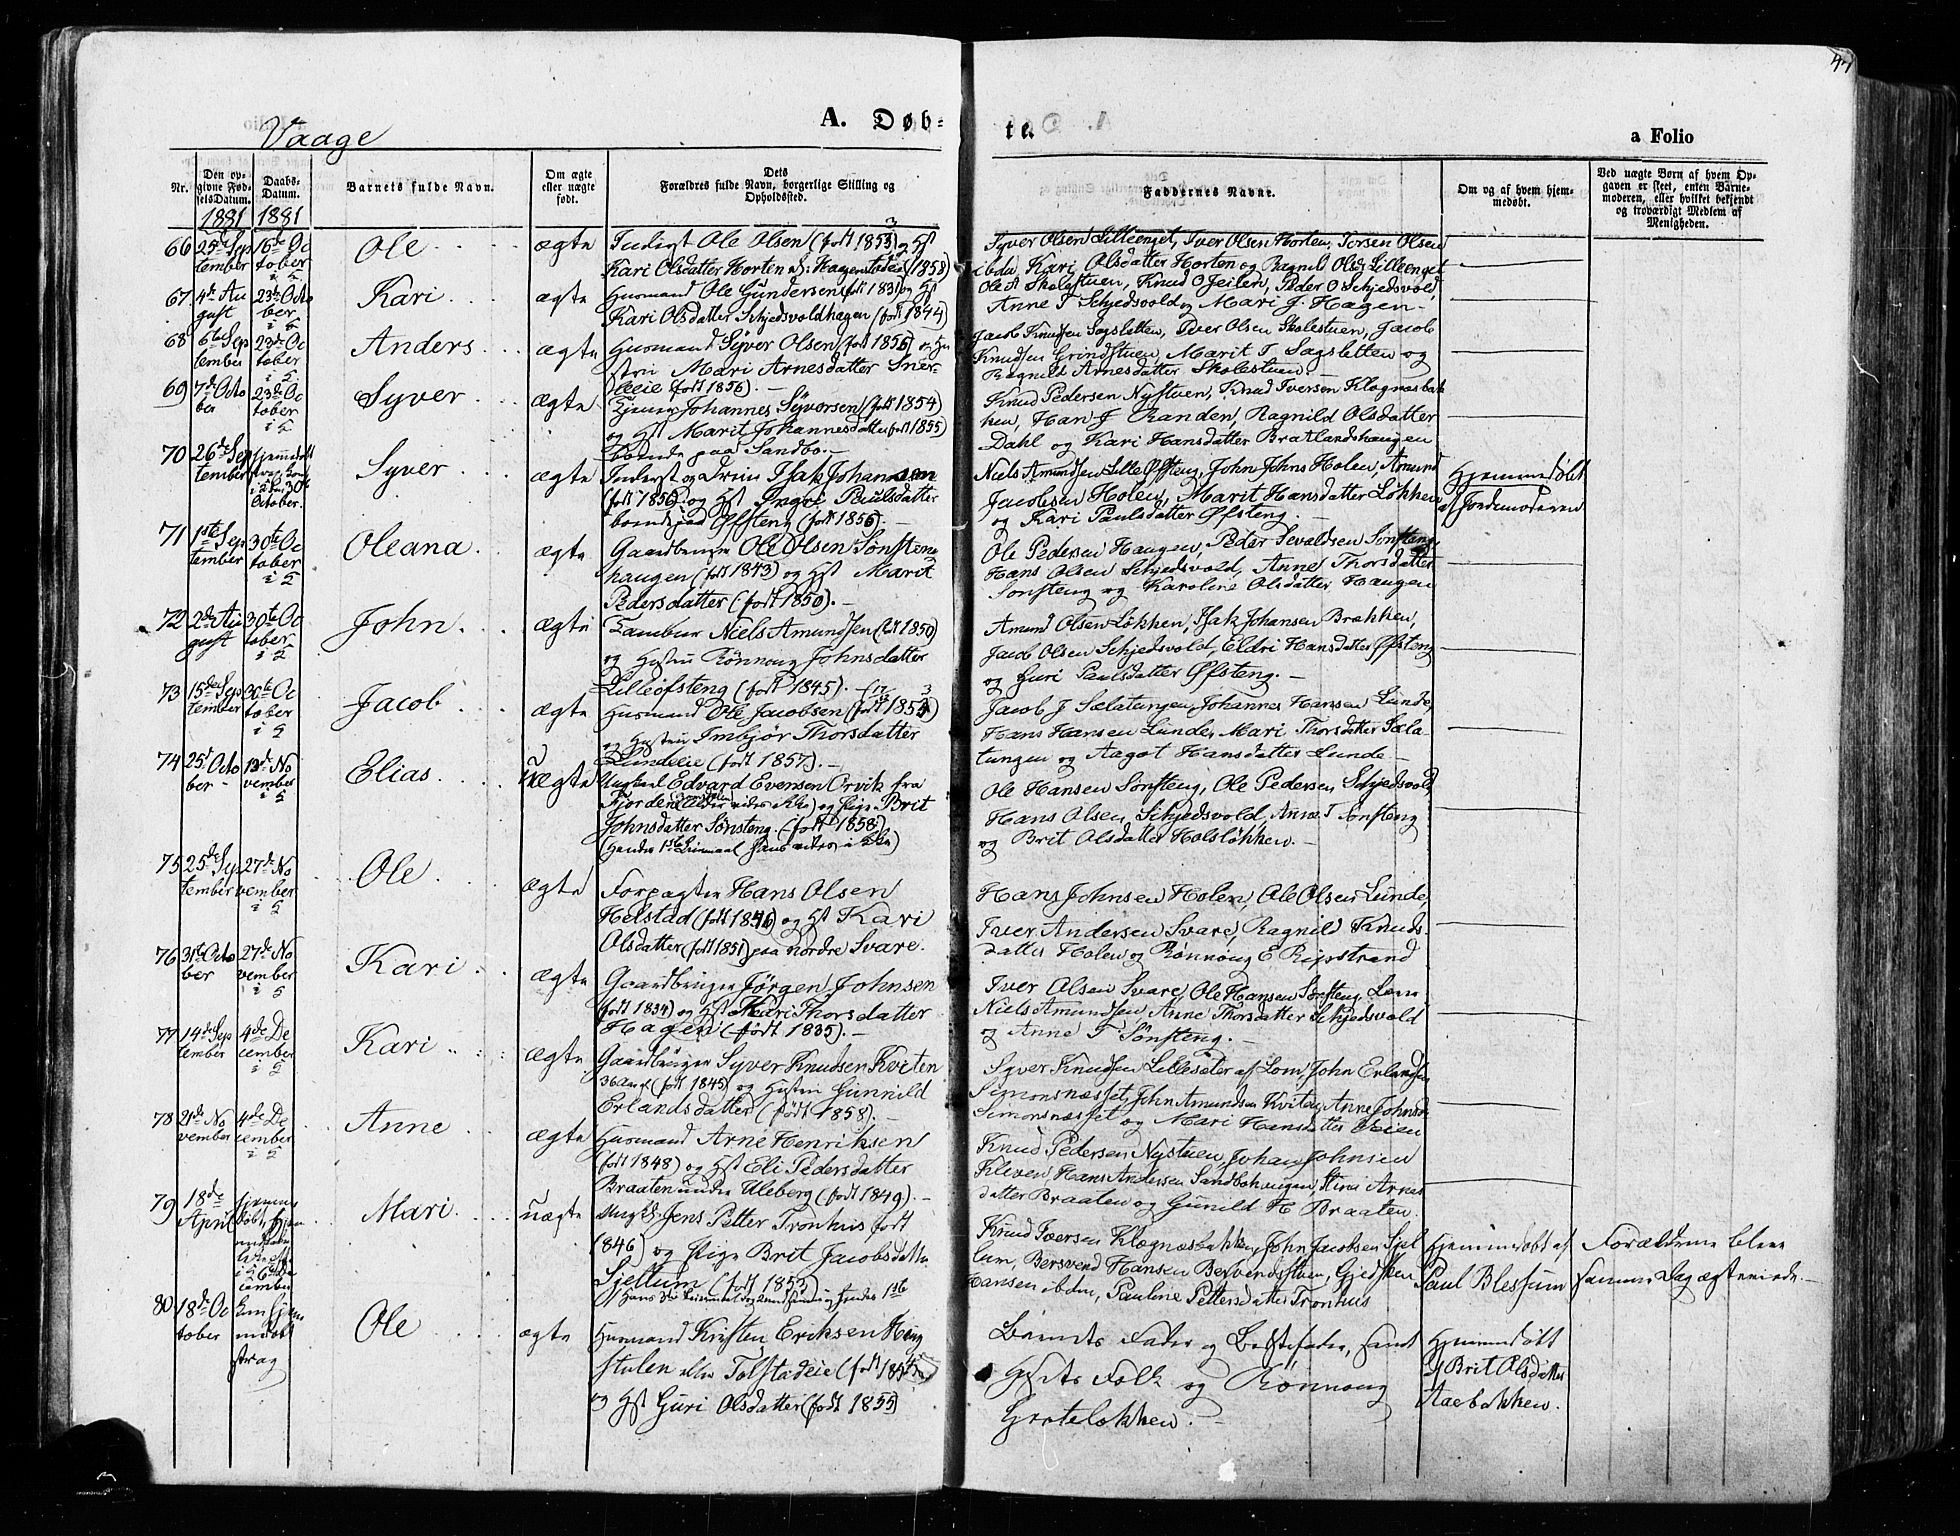 47
Vaage
A. Døb-
te.
a Folio
Nr.
Den op-
givne Fød-
selsDatum.
1881
Daabs-
Datum.
1881
Barnets fulde Navn.
Om ægte
eller uægte
født.
Dets
Forældres fulde Navn, borgerlige Stilling og
Opholdssted.
Faddernes Navne.
Om og af hvem hjem-
medøbt.
Ved uægte Børn af hvem Op-
gaven er skeet, enten Barne-
moderen, eller hvilket bekjendt
og troværdigt Medlem af
Menigheden.
66
25de Sep
tember
16de Oc
tober
i
Ole
ægte
Inderst Ole Olsen (født 1853) og Hst
Kari Olsdatter Horten (1858)
Syver Olsen Lilleenget, Iver Olsen Horten, Torsen Olsen
ibdn, Kari Olsdatter Horten og Ragnild Olsd. Lilleenget
67
4de Au
gust
23de Octo
ber
Kari
ægte
Husmand Ole Gundersen (født 1831) og Hst
Kari Olsdatter Schjedsvoldhagen (født 1844)
Ole A Skolestuen, Knud O Jeilen, Peder O Schjedsvold,
Anne T Schjedsvold og Mari J. Hagen
68
6te Sep
tember
23de Oc
tober
Anders
ægte
Husmand Syver Olsen (født 1856) og Hu
stru Mari Arnesdatter Sner-
leeie (født 1856).
Jacob Knudsen Sagsletten, Iver Olsen Skolestuen, Jacob
Knudsen Grindstuen, Marit T Sagsletten og
Ragnild Arnesdatter Skolestuen
69
7de Octo
ber
23de Oc
tober
Syver
ægte
Johannes Syversen (født 1854)
og Hst Marit Johannesdatter (født 1855)
boende paa Sandbo.
Knud Pedersen Nystuen, Knud Iversen Klognæsbak
ken, Han J Randen, Ragnild Olsdatter
Dahl og Kari Hansdatter Bratlandshaugen
70
26de Sep
tember
Hjemmedøbt
30te
October.
Syver
ægte
Inderst og Isak Johansen
(født 1856) og Hst Ingri Paulsdatter
boende paa Øfsteng (født 1856).
Niels Amundsen Lille Øfsteng, John Johns Holen, Amund
Jacobsen Holen, Marit Hansdatter Løkken
og Kari Paulsdatter Øfsteng.
Hjemmedøbt
af Jordemoderen
71
1ste Sep
tember
30te Oc
tober
Oleana
ægte
Gaardbruger Ole Olsen Sønsteng
haugen (født 1843) og Hst Marit
Pedersdatter (født 1850).
Ole Pedersen Haugen, Peder Sevaldsen Sønsteng,
Hans Olsen Schjedsvold, Anne Thorsdatter
Sønsteng og Karoline Olsdatter Haugen
72
2de Au
gust
30te Oc
tober
John
ægte
Tambur Niels Amundsen (født 1850)
og Hustru Rønnoug Johnsdatter
Lilleøfsteng (født 1845).
Amund Olsen Løkken, Isak Johansen Brekken,
Jacob Olsen Schjedsvold, Eldri Hansdatter Øfsteng
og Guri Paulsdatter Øfsteng.
73
15de Sep
tember
30te Oc
tober
Jacob
ægte
Husmand Ole Jacobsen (født 1853)
og Hustru Imbjør Thorsdatter
Lundeeie (født 1857).
Jacob J Sælatungen, Johannes Hansen Lunde,
Hans Hansen Lunde, Mari Thorsdatter Sæla-
tungen og Aagot Hansdatter Lunde
74
25de Octo
ber
13de No
vember
Elias
uægte
Ungkarl Edvard Evensen Orvik fra
Fjorden (Alder vides ikke) og Pige Brit
Johnsdatter Sønsteng (født 1858)
(Hendes 1ste Leiermaal, hans vides ikke)
Ole Hansen Sønsteng, Ole Pedersen Schjedsvold
Hans Olsen Schjedsvold, Anne T Sønsteng
og Brit Olsdatter Holsløkken.
75
25de Sep
tember
27de No
vember
Ole
ægte
Forpagter Hans Olsen
Helstad (født 1846) og Hst Kari
Olsdatter (født 1851) paa nordre Svare.
Hans Johnsen Holen, Ole Olsen Lunde,
Iver Andersen Svare, Ragnild Knuds
datter Holen og Rønnoug E Ripstrand
76
31te Octo
ber
27de No
vember
Kari
ægte
Gaardbruger Jørgen Johnsen
(født 1834) og Hst Mari Thorsdatter
Hagen (født 1835).
Iver Olsen Svare, Ole Hansen Sønsteng,
Niels Amundsen, Anne Thorsdatter Schjedsvold
og Anne T Sønsteng.
77
14de Sep
tember
4de De
cember
Kari
ægte
Gaardbruger Syver Knudsen Kviten
36 Aar (født 1845) og Hustru Gunnild
Erlandsdatter (født 1858).
Syver Knudsen Lillesæter af Lom, John Erlandsen
Simonsnæsset, John Amundsen Kviten, Anne Johnsd
Simonsnæsset og Mari Hansdatter Veien
78
21de No
vember
4de De
cember
Anne
ægte
Husmand Arne Henriksen
(født 1848) og Hst Eli Pedersdatter
Braaten under Uleberg (født 1849).
Knud Pedersen Nystuen, Johan Johnsen
Kleven, Hans Andersen Sandbohaugen, Stina Arnes
datter Braaten og Gunild H Braaten.
79
18de
April
Mari
uægte
Ungk. Jens Petter Tronhus født
1846) og Pige Brit Jacobsdatter
Sjellum (født 1853)
Knud Iversen Klognæsbakken, John Jacobsen Sjel
lum, Bersvend Hansen Bersvendstuen, Gjedsken
Hansen ibdm, Pauline Pettersdatter Tronhus
Hjemmedøbt af
Paul Blessum
Forældrene bleve
samme Dag ægteviede.
80
18de Oc
tober
Kun hjem
medøbt
strax
Ole
ægte
Husmand Kristen Eriksen Haug
stulen eller Tolstadeie (født 1854)
og Hst Guri Olsdatter (født 1855)
Barnets Fader og Bestefader, samt
Husets Folk og Rønnoug
Grøteløkken.
Hjemmedøbt
af Brit Olsdatter
Aaebakken.